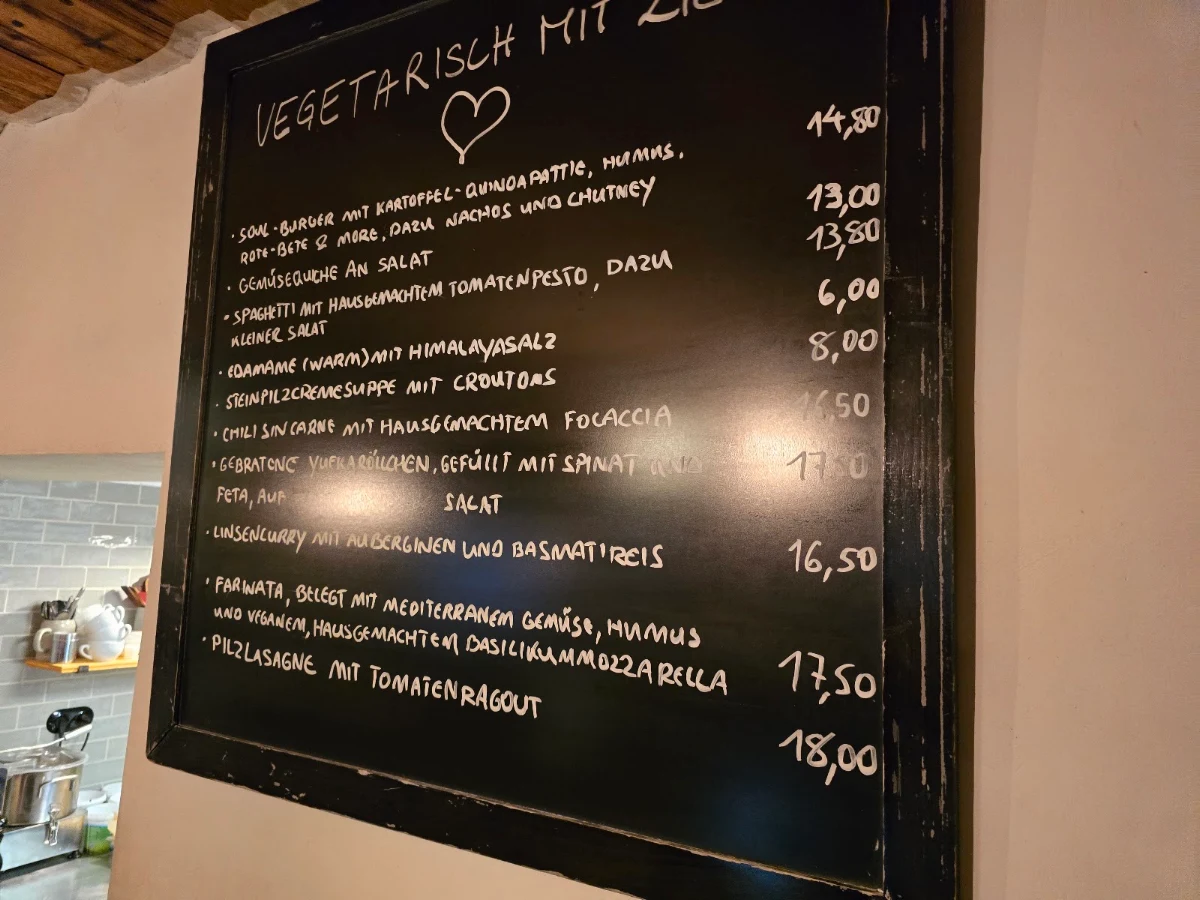 VEGETARISCH MIT
· SOUL-BURGER MIT KARTOFFEL-QUINOAPATTIE, HUMUS, 14,80
ROTE-BETE & MORE, DAZU NACHOS UND CHUTNEY
· GEMÜSEQUICHE AN SALAT 13,00
· SPAGHETTI MIT HAUSGEMACHTEM TOMATENPESTO, DAZU 13,80
KLEINER SALAT
· EDAMAME (WARM) MIT HIMALAYASALZ 6,00
· STEINPILZCREMESUPPE MIT CROUTONS 8,00
· CHILI SIN CARNE MIT HAUSGEMACHTEM FOCACCIA 16,50
· GEBRATENE YUFKARÖLLCHEN, GEFÜLLT MIT SPINAT UND 17,50
FETA, AUF SALAT
· LINSENCURRY MIT AUBERGINEN UND BASMATIREIS 16,50
· FARINATA, BELEGT MIT MEDITERRANEM GEMÜSE, HUMUS
UND VEGANEM, HAUSGEMACHTEM BASILIKUMMOZZARELLA 17,50
· PILZLASAGNE MIT TOMATENRAGOUT 18,00